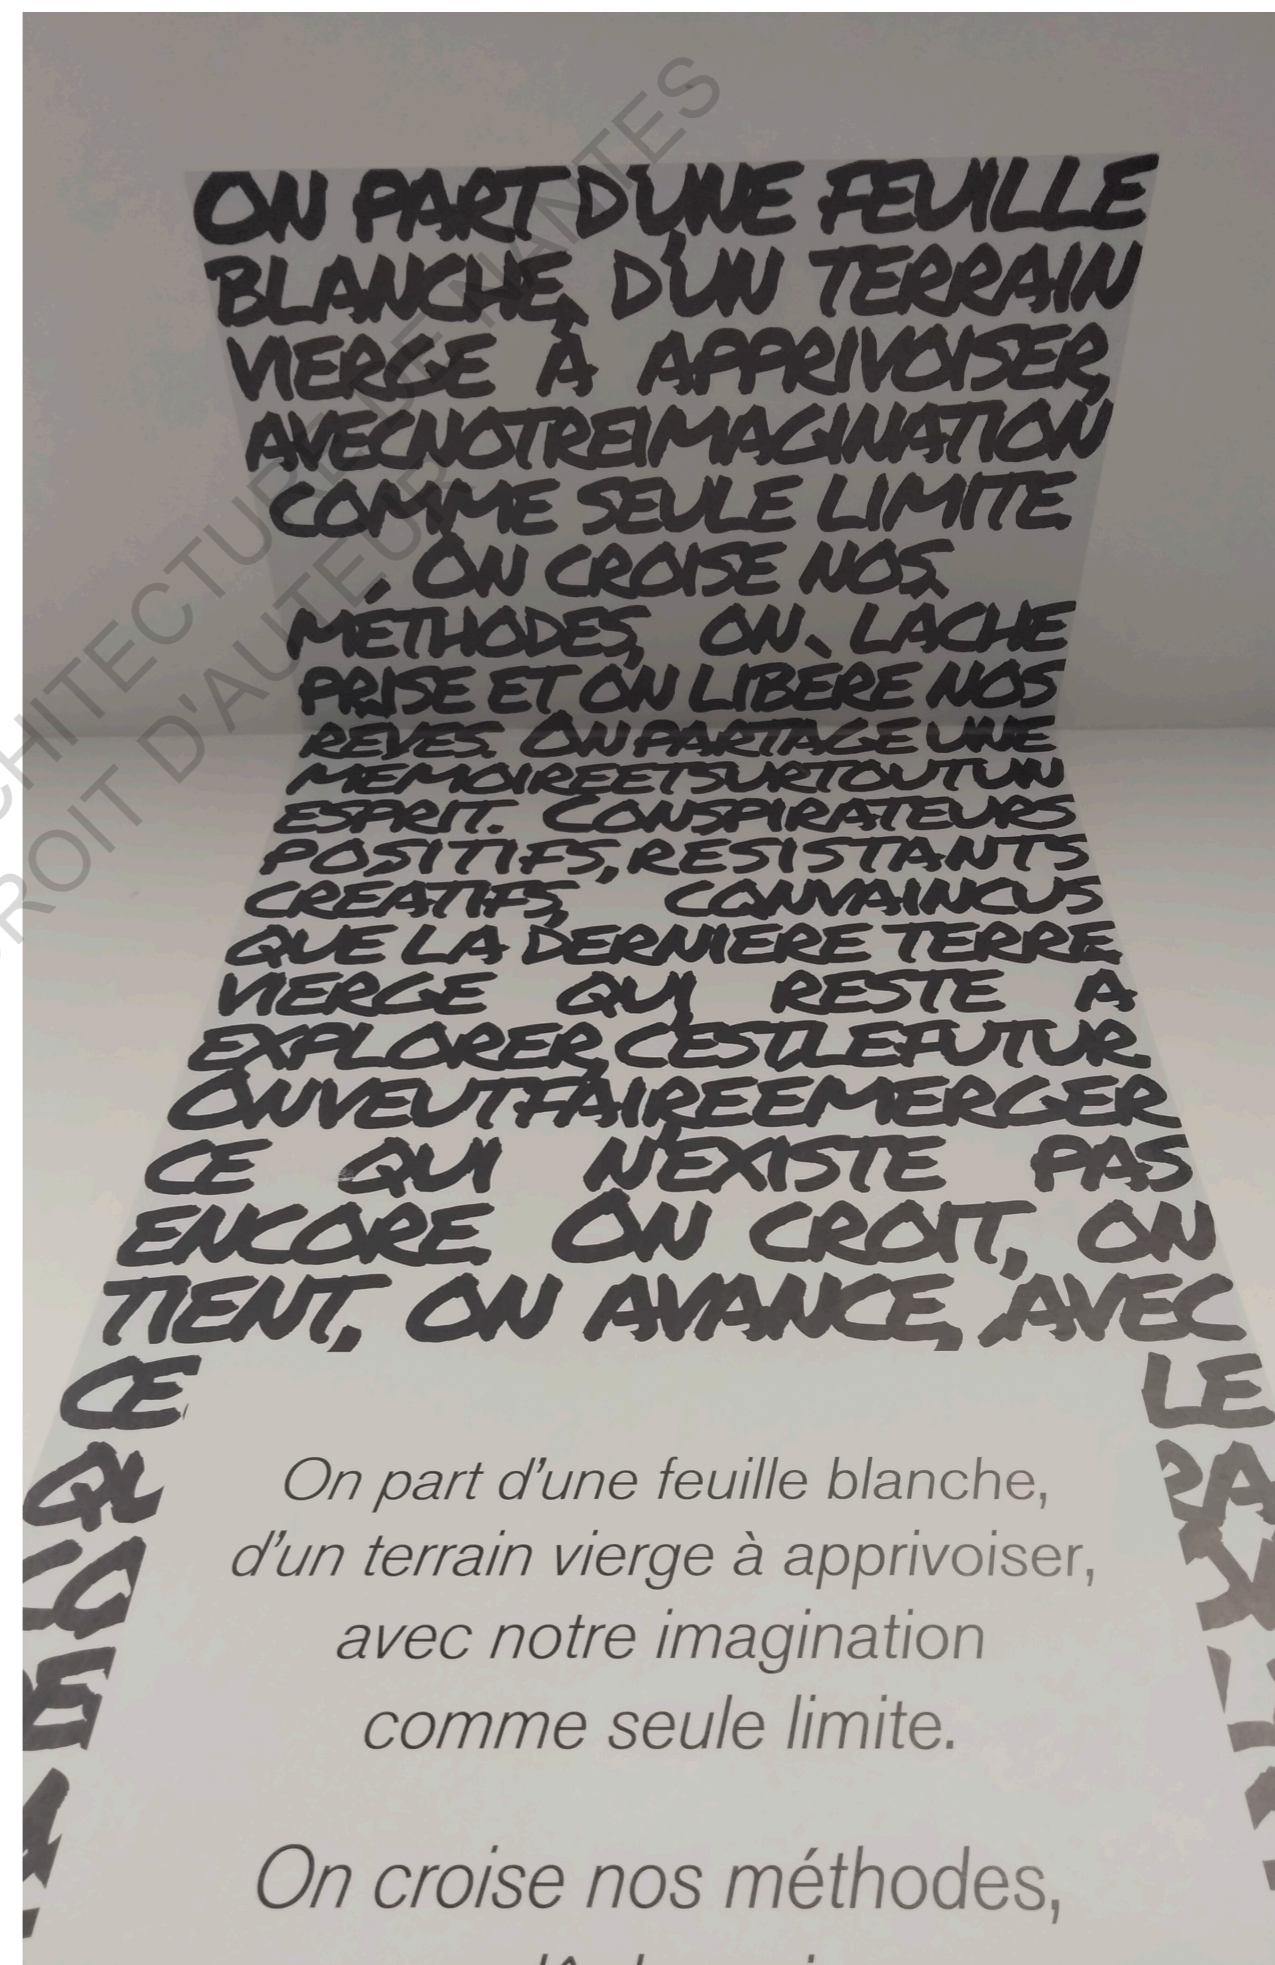 ON PART D'UNE FEUILLE
BLANCHE, D'UN TERRAIN
VIERGE À APPRIVOISER,
AVEC NOTRE IMAGINATION
COMME SEULE LIMITE.
ON CROISE NOS
MÉTHODES, ON LÂCHE
PRISE ET ON LIBÈRE NOS
REVES. ON PARTAGE UNE
MEMOIRE ET SURTOUT UN
ESPRIT. CONSPIRATEURS
POSITIFS, RESISTANTS
CREATIFS, CONVAINCUS
QUE LA DERNIERE TERRE
VIERGE QUI RESTE A
EXPLORER, C'EST LE FUTUR.
ON VEUT FAIRE EMERGER
CE QUI N'EXISTE PAS
ENCORE. ON CROIT, ON
TIENT, ON AVANCE, AVEC
CE LE
On part d'une feuille blanche,
d'un terrain vierge à apprivoiser,
avec notre imagination
comme seule limite.
On croise nos méthodes,
ARCHITECTURE DE NANTES
DROIT D'AUTEUR